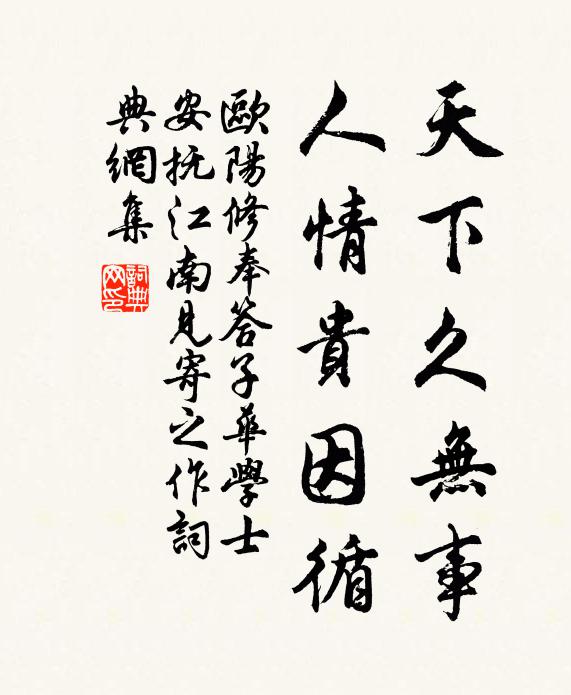 天下久無事
人情貴因循
歐陽修奉答子華學士
安抚江南見寄之作詞
典網集
詞典网印